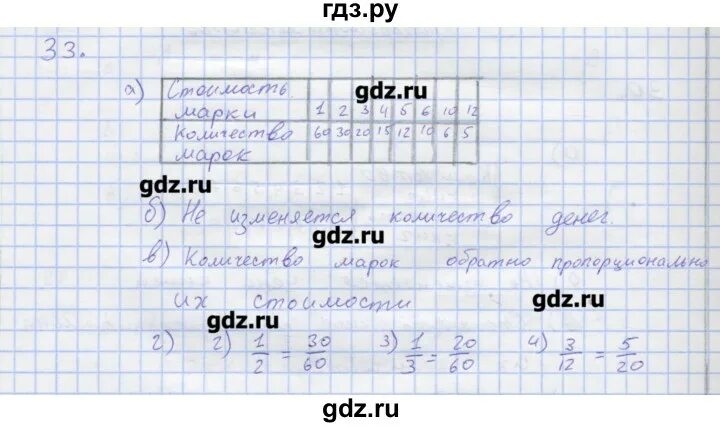 гдз.ру
33.
а) Стоимость марки 1 2 3 4 5 6 10 12
gdz.ru
Количество марок 60 30 20 15 12 10 6 5
gdz.ru
б) Не изменяется количество денег.
gdz.ru
в) Количество марок обратно пропорционально
их стоимости
gdz.ru
gdz.ru
г) 2) 1/2 = 30/60 3) 1/3 = 20/60 4) 3/12 = 5/20
gdz.ru